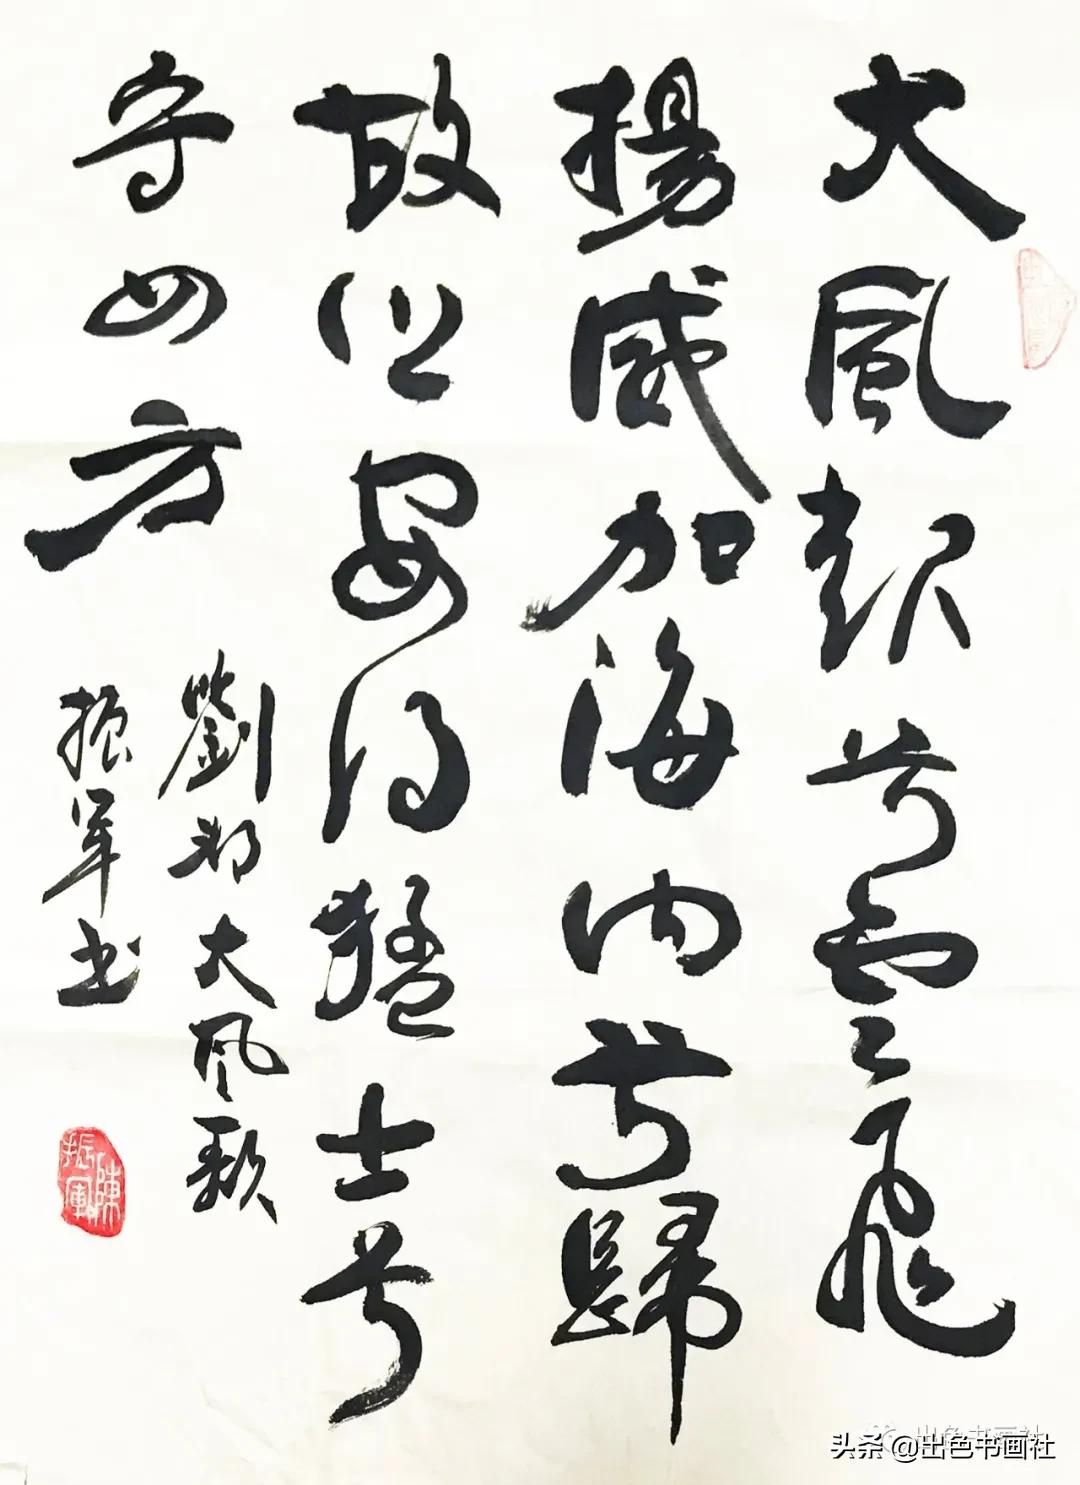 大風起兮雲飛
揚威加海内兮歸
故鄉安得猛士兮
守四方
劉邦大風歌
振军书
陳振軍
出色书画社
头条 @出色书画社